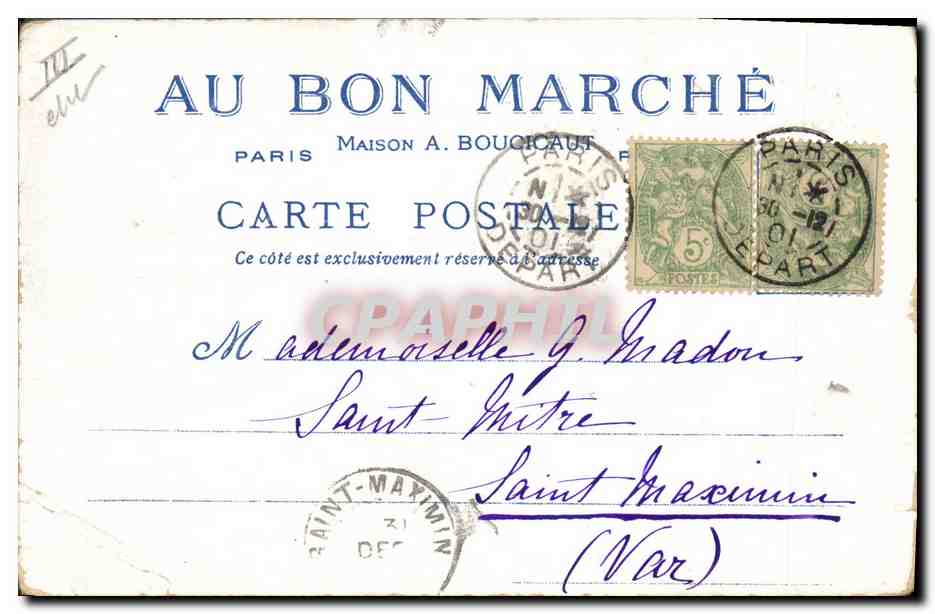 III
AU BON MARCHÉ
MAISON A. BOUCICAUT
PARIS
CARTE POSTALE
Ce côté est exclusivement réservé à l'adresse
PARIS
30 -12
01
DEPART
5c
POSTES
PARIS
30 -12
01
DEPART
CPAPHIL
Mademoiselle G. Madon
Saint Mitre
Saint Maximin
(Var)
SAINT-MAXIMIN
31
DEC